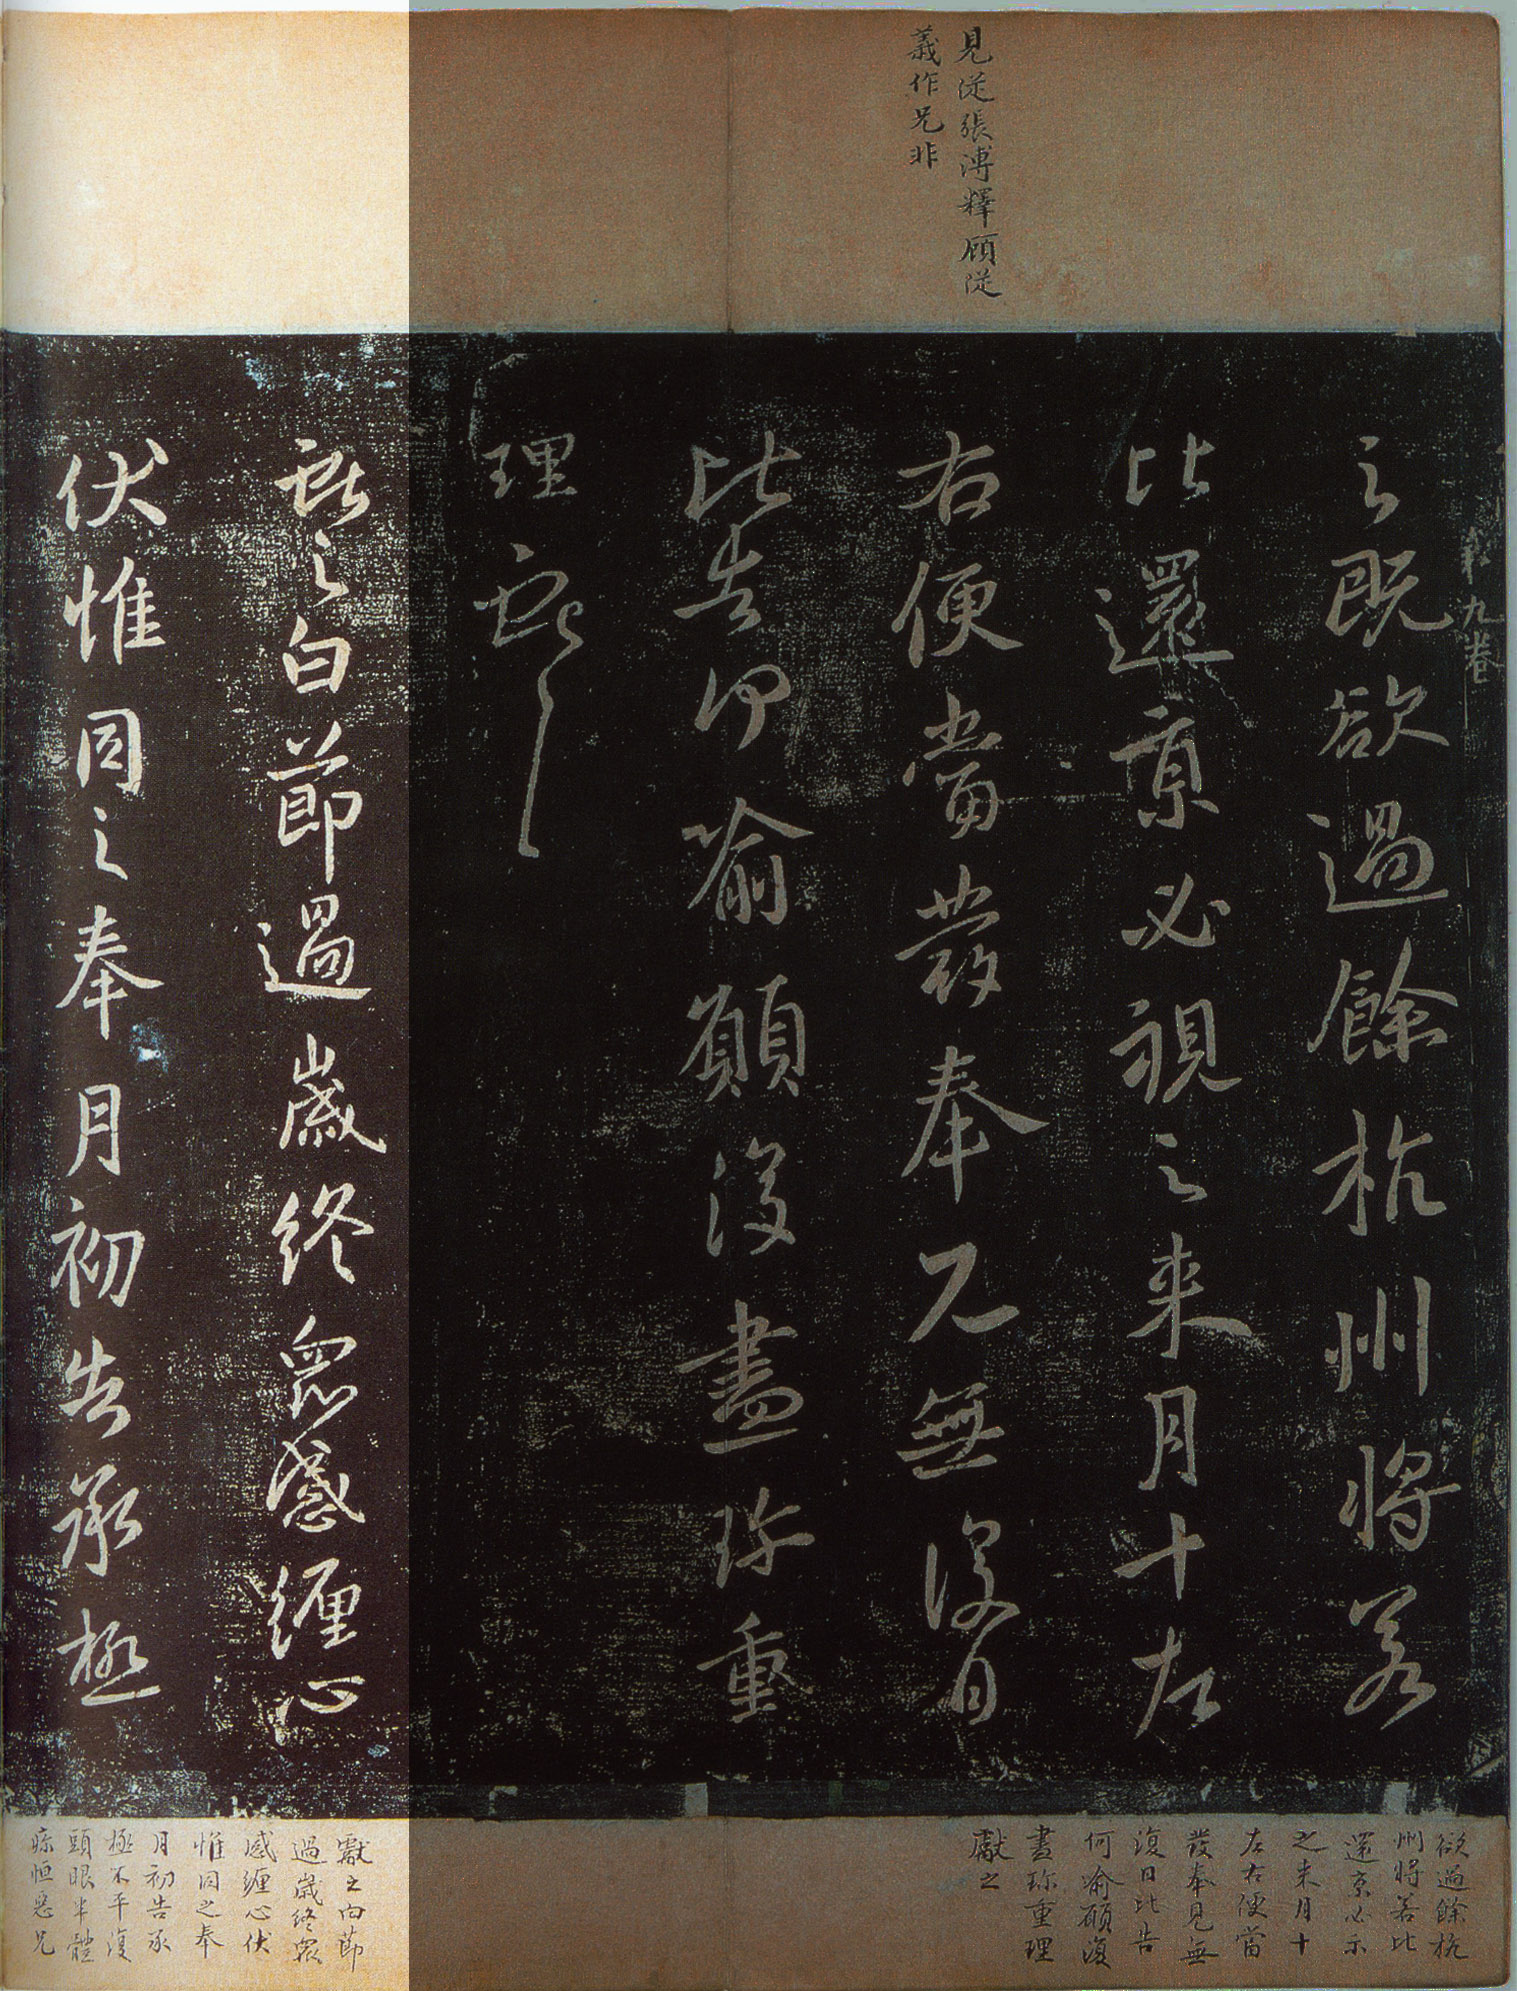 見從張溥釋顧從
義作兄非
第九卷
之既欲過餘杭州將若
比還京必視之来月十左
右便當發奉見無復日
比告何喻願復盡珍重
理獻之
獻之白節過歲終眾感纏心
伏惟同之奉月初告承極
欲過餘杭
州將若比
還京必示
之来月十
左右便當
發奉見無
復日比告
何喻願復
盡珍重理
獻之
獻之白節
過歲終眾
感纏心伏
惟同之奉
月初告承
極不平復
頭眼半體
疼恒惡兄